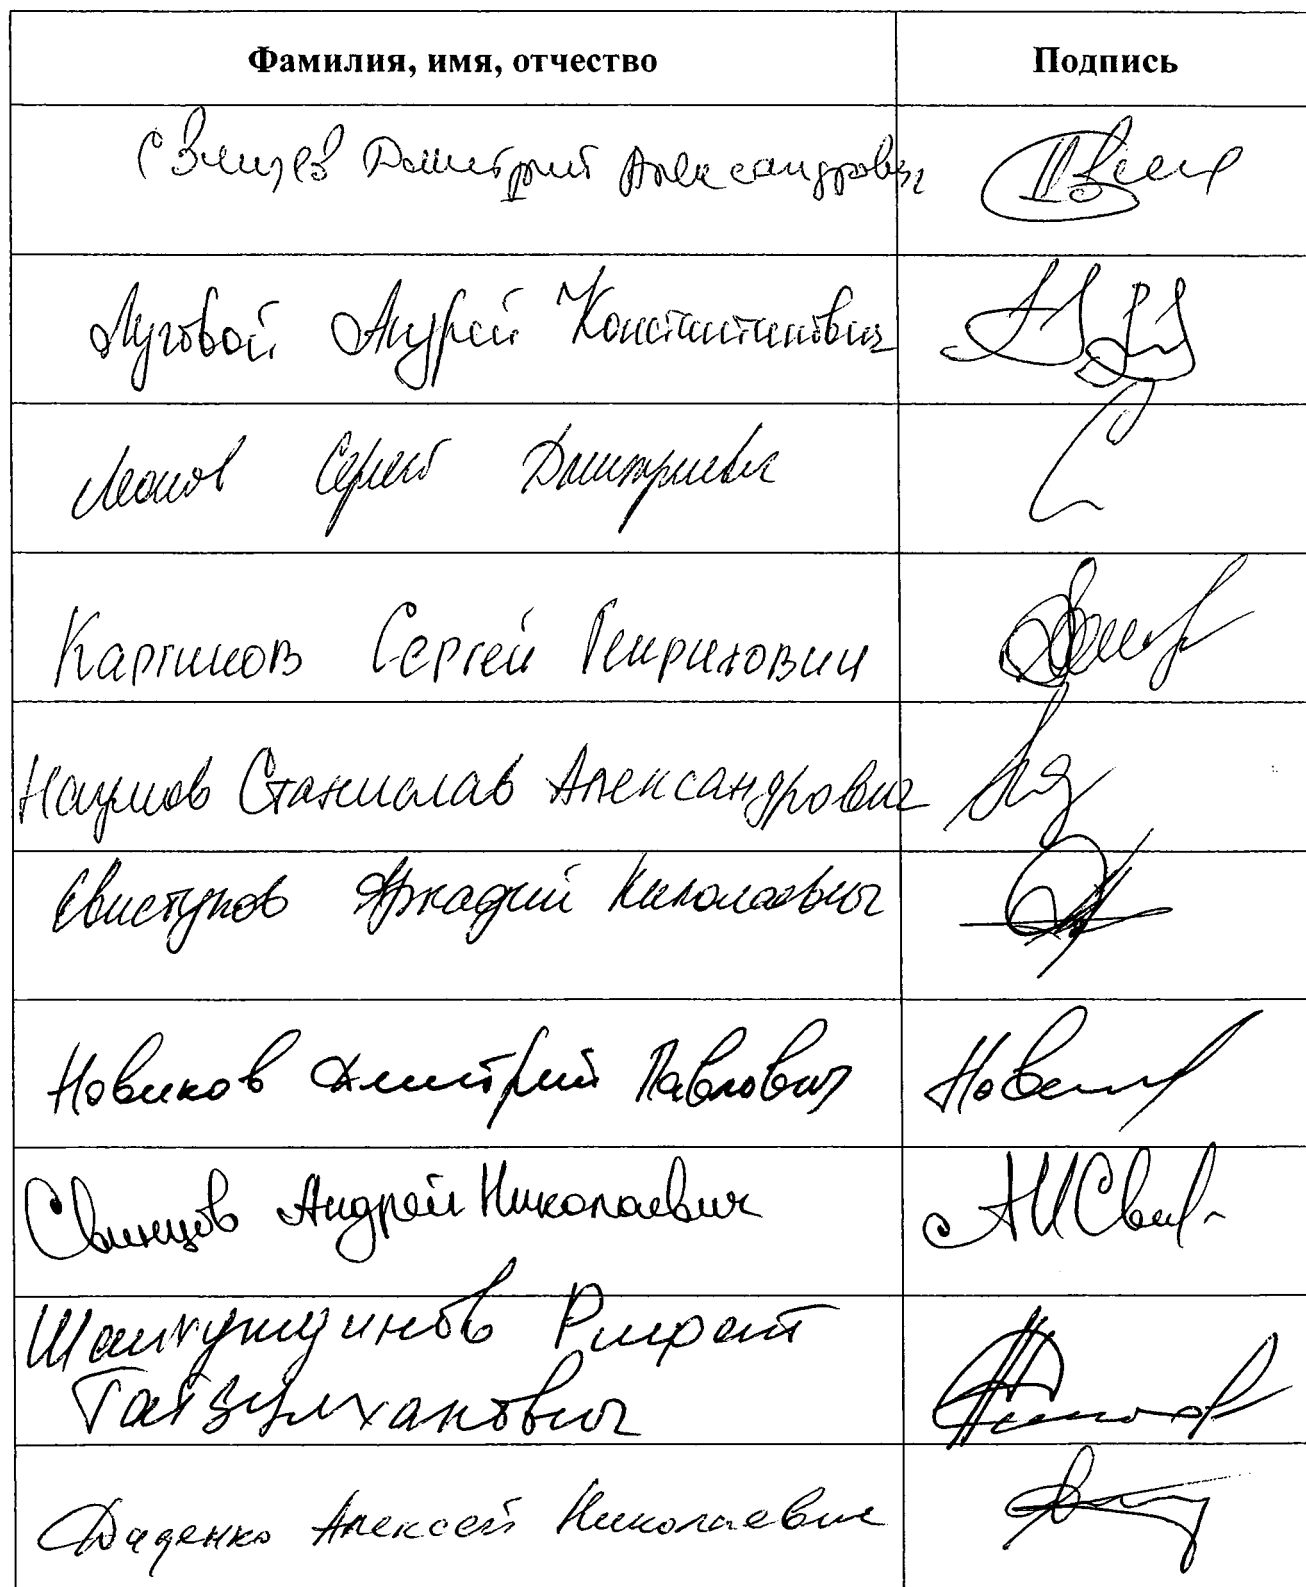 Фамилия, имя, отчество Подпись
Свищев Дмитрий Александрович
Луговой Андрей Константинович
Леонов Сергей Дмитриевич
Каргинов Сергей Генрихович
Наумов Станислав Александрович
Свистунов Аркадий Николаевич
Новиков Дмитрий Павлович
Свинцов Андрей Николаевич
Шайхутдинов Рифат
Гайзулханович
Диденко Алексей Николаевич